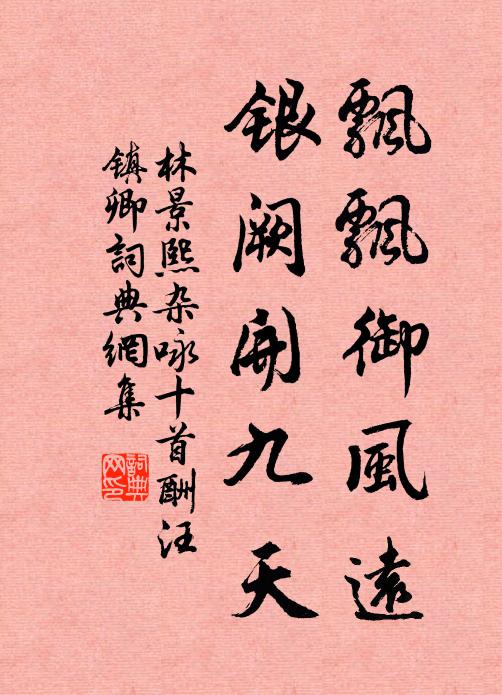 飄飄御風遠
银阙開九天
林景熙杂咏十首酬汪
镇卿詞典網集
詞典网印